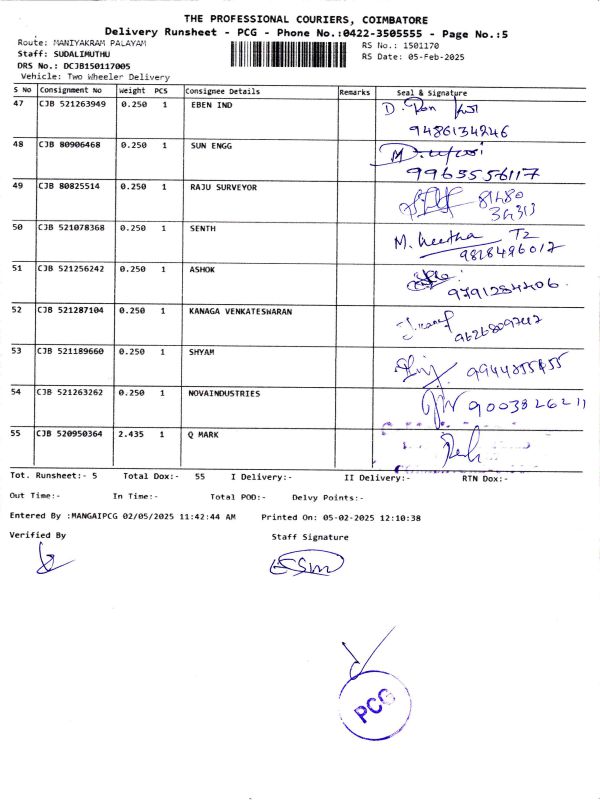 THE PROFESSIONAL COURIERS, COIMBATORE
Delivery Runsheet - PCG - Phone No.:0422-3505555 - Page No.:5
Route: MANIYAKRAM PALAYAM
RS No.: 1501170
Staff: SUDALIMUTHU
RS Date: 05-Feb-2025
DRS No.: DCJB150117005
Vehicle: Two Wheeler Delivery
S No Consignment No Weight PCS Consignee Details Remarks Seal & Signature
47 CJB 521263949 0.250 1 EBEN IND
9486134246
48 CJB 80906468 0.250 1 SUN ENGG
9963556117
49 CJB 80825514 0.250 1 RAJU SURVEYOR
50 CJB 521078368 0.250 1 SENTH M. Geetha
9828496017
51 CJB 521256242 0.250 1 ASHOK
9791284406
52 CJB 521287104 0.250 1 KANAGA VENKATESWARAN
9626809742
53 CJB 521189660 0.250 1 SHYAM
54 CJB 521263262 0.250 1 NOVAINDUSTRIES 9003826211
55 CJB 520950364 2.435 1 Q MARK
Tot. Runsheet:- 5 Total Dox:- 55 I Delivery:- II Delivery:- RTN Dox:-
Out Time:- In Time:- Total POD:- Delvy Points:-
Entered By :MANGAIPCG 02/05/2025 11:42:44 AM Printed On: 05-02-2025 12:10:38
Verified By Staff Signature
PCG